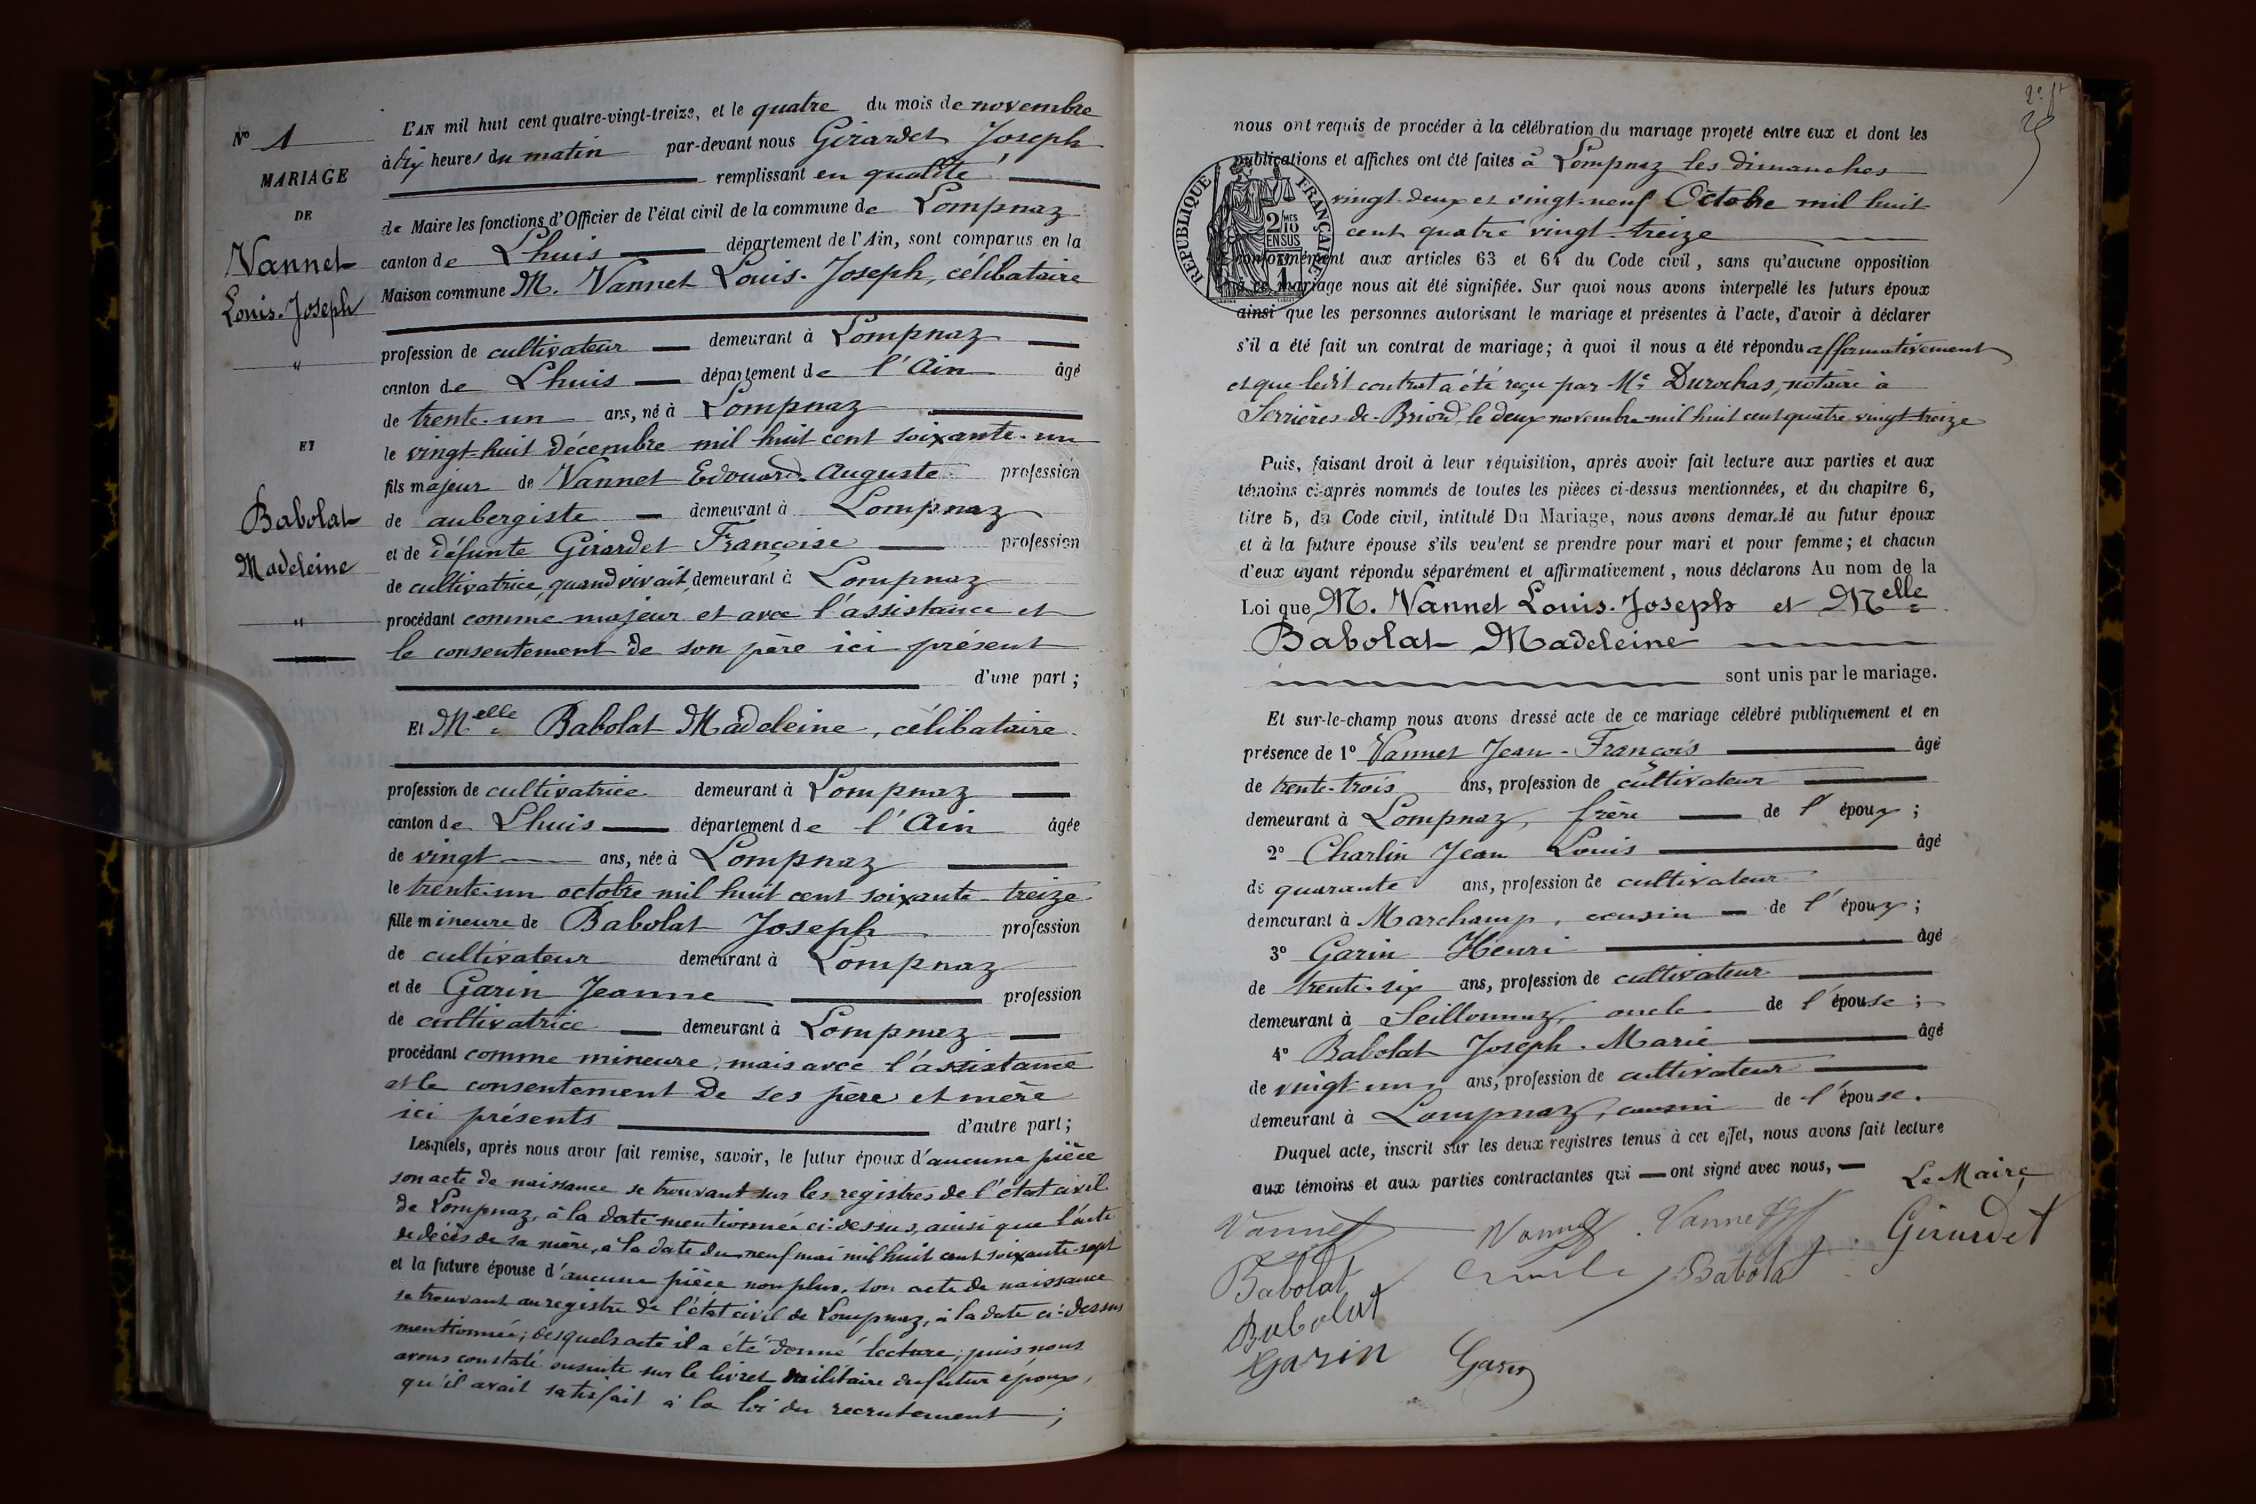 N° 1
MARIAGE
DE
Vannet
Louis-Joseph
"
ET
Babolat
Madeleine
"
L'AN mil huit cent quatre-vingt-treize, et le quatre du mois de novembre
à dix heures du matin par-devant nous Girardet Joseph
remplissant en qualité
de Maire les fonctions d'Officier de l'état civil de la commune de Lompnaz
canton de Lhuis département de l'Ain, sont comparus en la
Maison commune M. Vannet Louis-Joseph, célibataire
profession de cultivateur demeurant à Lompnaz
canton de Lhuis département de l'Ain âgé
de trente-un ans, né à Lompnaz
le vingt-huit décembre mil huit cent soixante-un
fils majeur de Vannet Edouard-Auguste profession
de aubergiste demeurant à Lompnaz
et de défunte Girardet Françoise profession
de cultivatrice, quand vivait, demeurant à Lompnaz
procédant comme majeur et avec l'assistance et
le consentement de son père ici présent
d'une part ;
Et Melle Babolat Madeleine, célibataire
profession de cultivatrice demeurant à Lompnaz
canton de Lhuis département de l'Ain âgée
de vingt ans, née à Lompnaz
le trente-un octobre mil huit cent soixante-treize
fille mineure de Babolat Joseph profession
de cultivateur demeurant à Lompnaz
et de Garin Jeanne profession
de cultivatrice demeurant à Lompnaz
procédant comme mineure, mais avec l'assistance
et le consentement de ses père et mère
ici présents d'autre part ;
Lesquels, après nous avoir fait remise, savoir, le futur époux d'aucune pièce
son acte de naissance se trouvant sur les registres de l'état civil
de Lompnaz, à la date mentionnée ci-dessus, ainsi que l'acte
de décès de sa mère, à la date du neuf mai mil huit cent soixante-sept
et la future épouse d'aucune pièce non plus, son acte de naissance
se trouvant au registre de l'état civil de Lompnaz, à la date ci-dessus
mentionnée ; desquels acte il a été donné lecture ; puis nous
avons constaté ensuite sur le livret militaire du futur époux,
qu'il avait satisfait à la loi du recrutement ;
nous ont requis de procéder à la célébration du mariage projeté entre eux et dont les
publications et affiches ont été faites à Lompnaz les dimanches
vingt-deux et vingt-neuf Octobre mil huit
cent quatre vingt-treize
RÉPUBLIQUE FRANÇAISE
2/10 MES
EN SUS
conformément aux articles 63 et 64 du Code civil, sans qu'aucune opposition
à ce mariage nous ait été signifiée. Sur quoi nous avons interpellé les futurs époux
ainsi que les personnes autorisant le mariage et présentes à l'acte, d'avoir à déclarer
s'il a été fait un contrat de mariage ; à quoi il nous a été répondu affirmativement
et que ledit contrat a été reçu par Me Durochas, notaire à
Serrières-de-Briord, le deux novembre mil huit cent quatre vingt-treize
Puis, faisant droit à leur réquisition, après avoir fait lecture aux parties et aux
témoins ci-après nommés de toutes les pièces ci-dessus mentionnées, et du chapitre 6,
titre 5, du Code civil, intitulé Du Mariage, nous avons demandé au futur époux
et à la future épouse s'ils veulent se prendre pour mari et pour femme ; et chacun
d'eux ayant répondu séparément et affirmativement, nous déclarons Au nom de la
Loi que M. Vannet Louis-Joseph et Melle
Babolat Madeleine
sont unis par le mariage.
Et sur-le-champ nous avons dressé acte de ce mariage célébré publiquement et en
présence de 1° Vannet Jean-François âgé
de trente-trois ans, profession de cultivateur
demeurant à Lompnaz, frère de l'époux ;
2° Charlin Jean Louis âgé
de quarante ans, profession de cultivateur
demeurant à Marchamp, cousin de l'époux ;
3° Garin Henri âgé
de trente-six ans, profession de cultivateur
demeurant à Seillonnaz, oncle de l'épouse ;
4° Babolat Joseph-Marie âgé
de vingt-un ans, profession de cultivateur
demeurant à Lompnaz, cousin de l'épouse.
Duquel acte, inscrit sur les deux registres tenus à cet effet, nous avons fait lecture
aux témoins et aux parties contractantes qui ont signé avec nous,
Le Maire
Vannet Vannet Vannet Girardet
Babolat Babolat
Babolat
Garin Garin